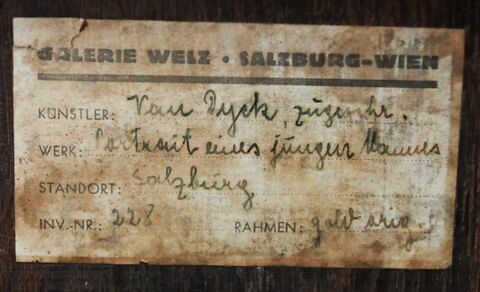 GALERIE WELZ · SALZBURG-WIEN
KÜNSTLER: Van Dyck, zugeschr.
WERK: Portrait eines jungen Mannes
STANDORT: Salzburg
INV.-NR.: 228 RAHMEN: gold orig.